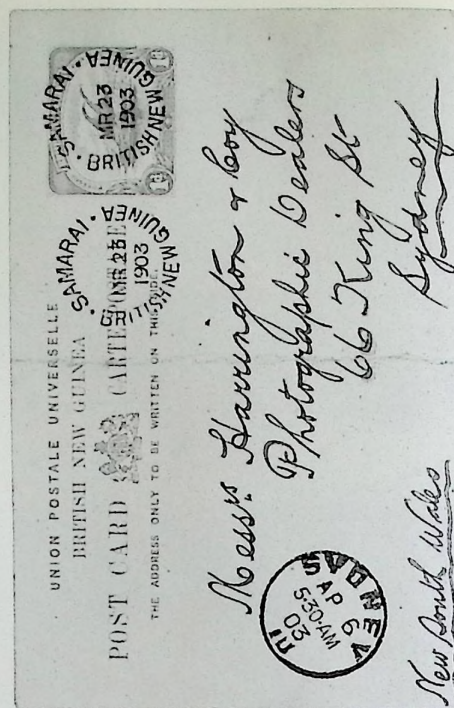 UNION POSTALE UNIVERSELLE
BRITISH NEW GUINEA
POST CARD CARTE POSTALE
THE ADDRESS ONLY TO BE WRITTEN ON THIS SIDE.
1d 1d
SAMARAI · BRITISH NEW GUINEA ·
MR 23
1903
SAMARAI · BRITISH NEW GUINEA ·
MR 23
1903
Messrs Harrington & Coy
Photographic Dealers
66 King St
Sydney
New South Wales
SYDNEY
AP 6
5·30·AM
03